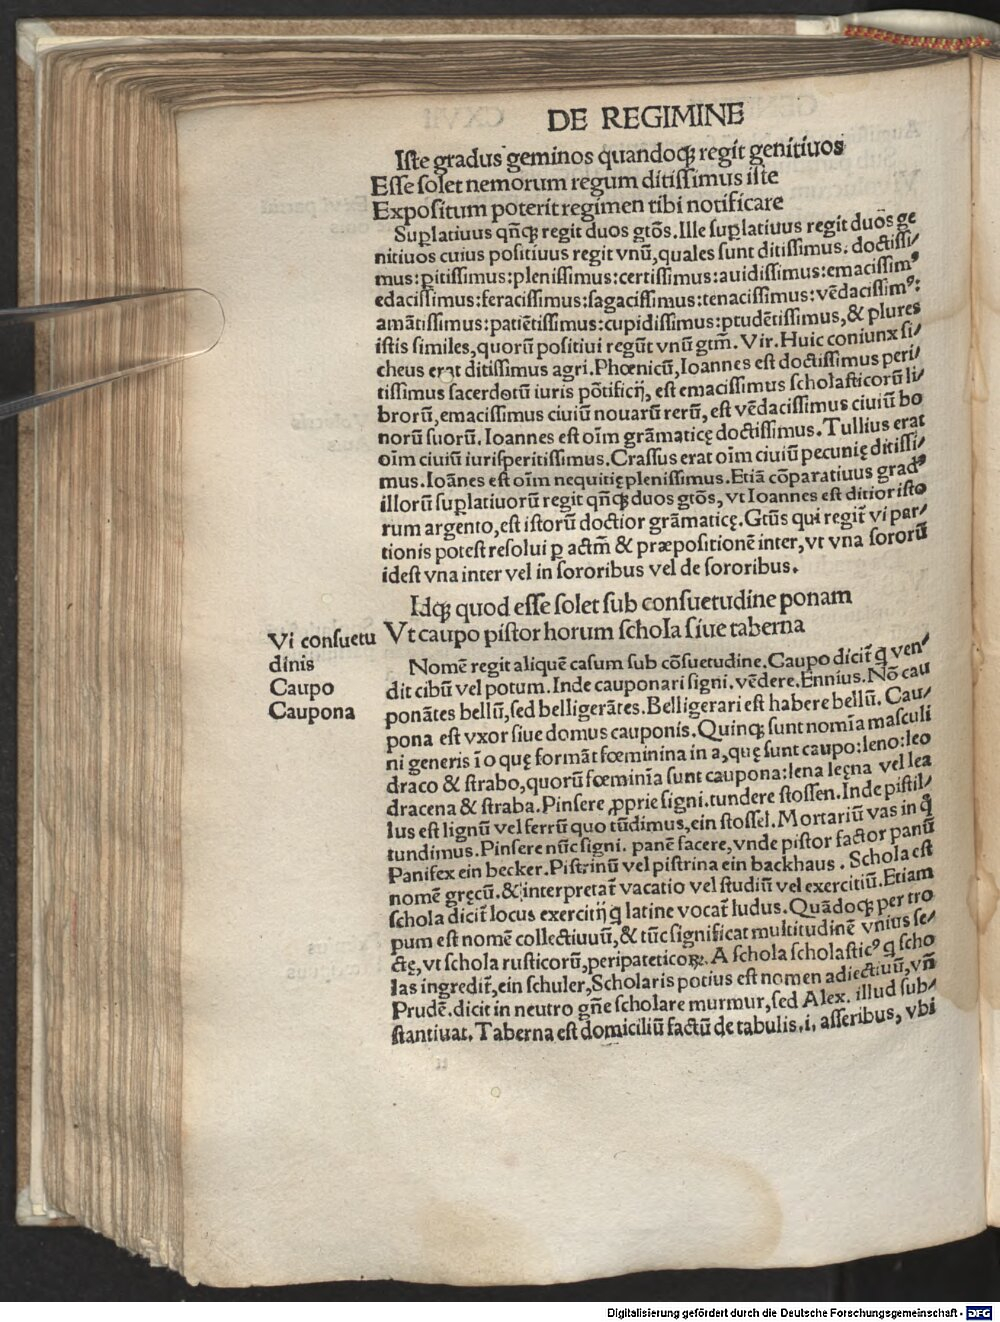 DE REGIMINE
Iste gradus geminos quandoqꝫ regit genitiuos
Esse solet nemorum regum ditissimus iste
Expositum poterit regimen tibi notificare
Suꝑlatiuus qñqꝫ regit duos gtōs. Ille suꝑlatiuus regit duos ge
nitiuos cuius positiuus regit vnū, quales sunt ditissimus. doctissi/
mus:ꝑitissimus:plenissimus:certissimus:auidissimus:emacissimꝰ
edacissimus:feracissimus:sagacissimus:tenacissimus:vēdacissimꝰ:
amātissimus:patiētissimus:cupidissimus:prudētissimus, & plures
istis similes, quorū positiui regūt vnū gtm̄. Vir. Huic coniunx si/
cheus erat ditissimus agri. Phœnicū, Ioannes est doctissimus peri/
tissimus sacerdotū iuris pōtificij, est emacissimus scholasticorū li/
brorū, emacissimus ciuiū nouarū rerū, est vēdacissimus ciuiū bo
norū suorū. Ioannes est oīm grāmaticę doctissimus. Tullius erat
oīm ciuiū iurisperitissimus. Crassus erat oīm ciuiū pecunię ditissi/
mus. Ioānes est oīm nequitię plenissimus. Etiā cōparatiuus gradꝰ
illorū suꝑlatiuorū regit qñqꝫ duos gtōs, vt Ioannes est ditior isto
rum argento, est istorū doctior grāmaticę. Gtūs qui regit̄ vi par/
tionis potest resolui ꝑ actm̄ & præpositionē inter, vt vna sororū
idest vna inter vel in sororibus vel de sororibus.
Idqꝫ quod esse solet sub consuetudine ponam
Vt caupo pistor horum schola siue taberna
Vi consuetu
dinis
Caupo
Caupona
Nomē regit aliquē casum sub cōsuetudine. Caupo dicit̄ q̄ ven/
dit cibū vel potum. Inde cauponari signi. vēdere. Ennius. Nō cau
ponātes bellū, sed belligerātes. Belligerari est habere bellū. Cau/
pona est vxor siue domus cauponis. Quinqꝫ sunt nomīa masculi
ni generis ī o quę formāt fœminina in a, quę sunt caupo:leno:leo
draco & strabo, quorū fœminīa sunt caupona:lena leęna vel lea
dracena & straba. Pinsere ꝓprie signi. tundere stossen. Inde pistil/
lus est lignū vel ferrū quo tūdimus, ein stossel. Mortariū vas in q̊
tundimus. Pinsere nūc signi. panē facere, vnde pistor factor panū
Panifex ein becker. Pistrinū vel pistrina ein backhaus. Schola est
nomē gręcū. & interpretat̄ vacatio vel studiū vel exercitiū. Etiam
schola dicit̄ locus exercitij q̄ latine vocat̄ ludus. Quādoqꝫ per tro
pum est nomē collectiuuū, & tūc significat multitudinē vnius se/
ctę, vt schola rusticorū, peripateticoꝝ. A schola scholasticꝰ q̄ scho
las ingredit̄, ein schuler, Scholaris potius est nomen adiectiuū, vñ
Prudē. dicit in neutro gñe scholare murmur, sed Alex. illud sub/
stantiuat. Taberna est domiciliū factū de tabulis. i. asseribus, vbi
Digitalisierung gefördert durch die Deutsche Forschungsgemeinschaft - DFG